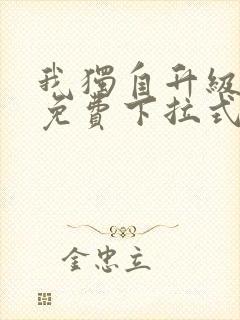 我獨自升級
免費下拉式
金忠立